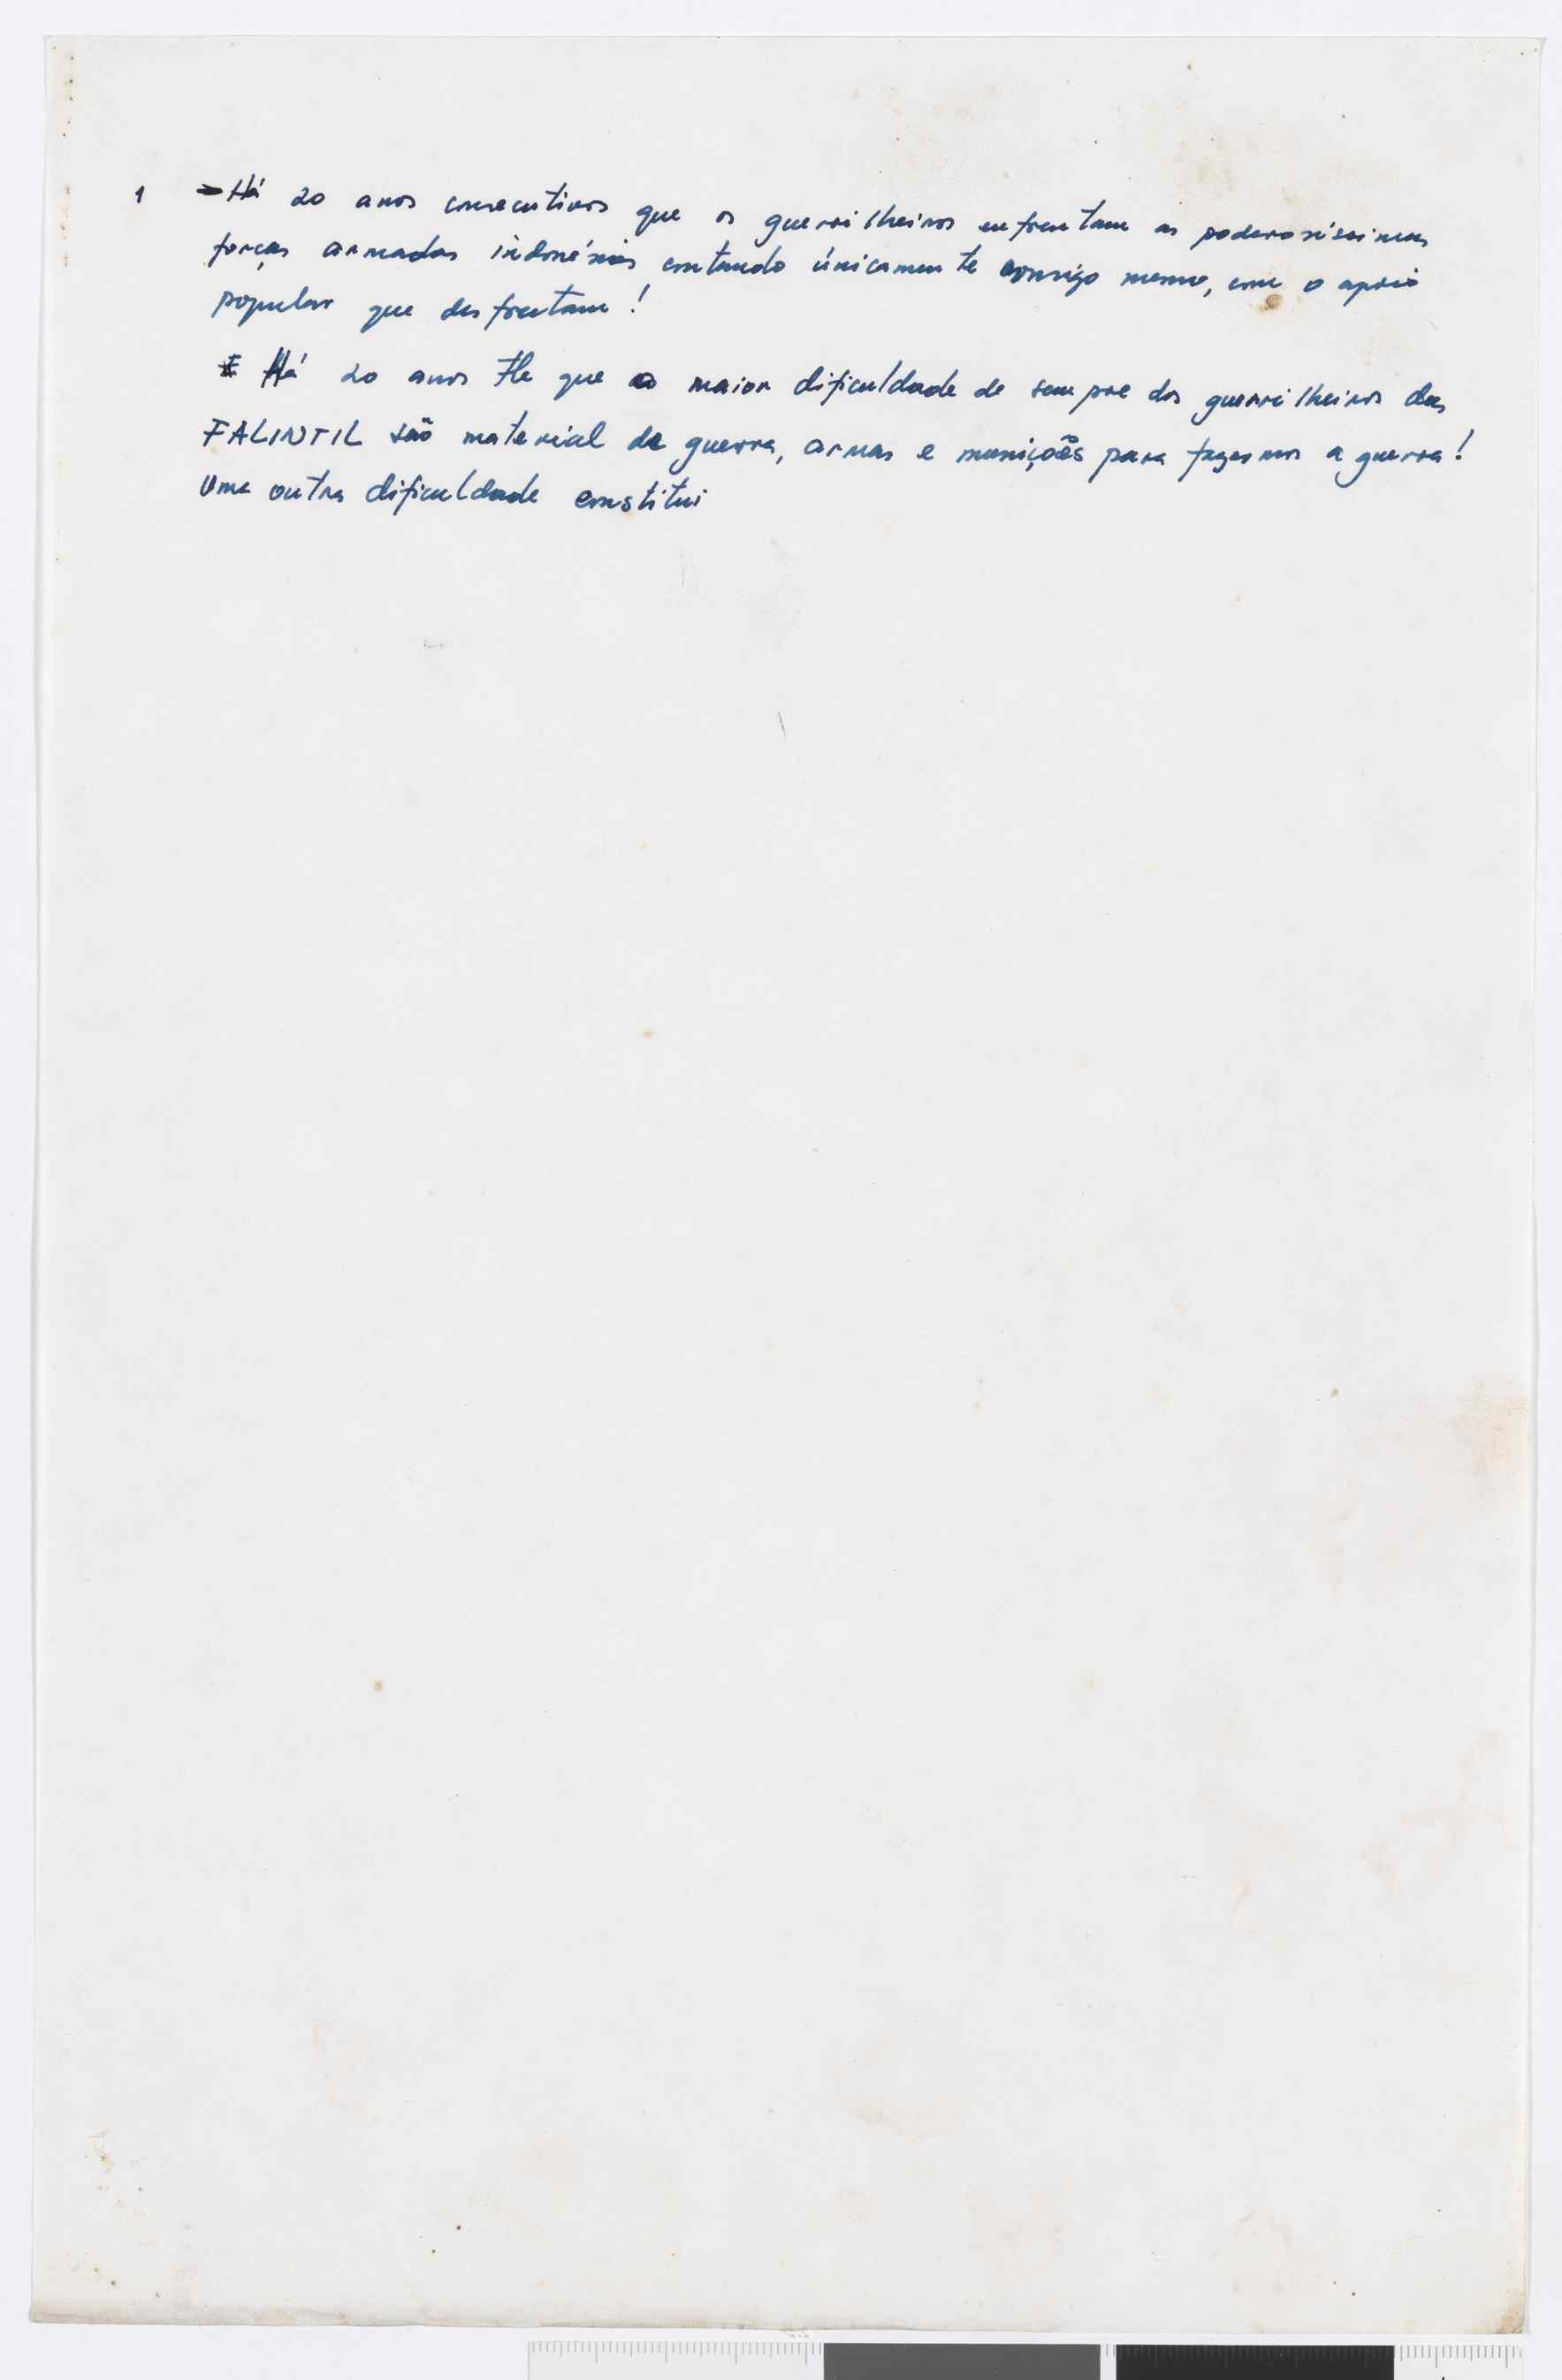 1 - Há 20 anos consecutivos que os guerrilheiros enfrentam as poderosíssimas
forças armadas indonésias, contando únicamente consigo mesmo, com o apoio
popular que desfrutam!
Há 20 anos que a maior dificuldade de sempre dos guerrilheiros das
FALINTIL são material de guerra, armas e munições para fazermos a guerra!
Uma outra dificuldade constitui